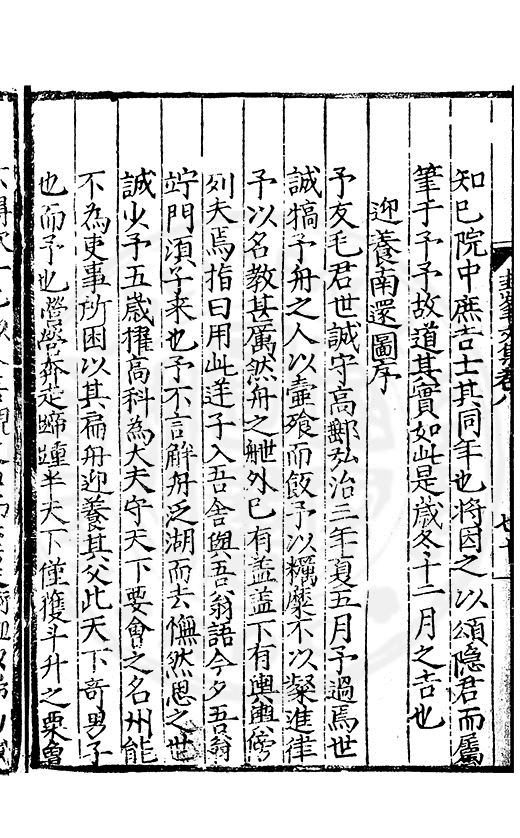 知已院中庶吉士其同年也將因之以頌隐君而屬
筆于予予故道其實如此是歲冬十二月之吉也
迎養南還圖序
予友毛君世誠守高郵弘治三年夏五月予過焉世
誠犒予舟之人以壷飱而飯予以糲麋不以粲進徃
予以名教甚厲然舟之舣外已有盖盖下有輿輿傍
列夫焉指曰用此迓子入吾舍與吾翁語今夕吾翁
竚門湏子来也予不言解舟乏湖而去憮然思之世
誠少予五歲擢高科為大夫守天下要會之名州能
不為吏事所困以其扁舟迎養其父此天下竒男子
也而予也營營奔走蹄踵半天下僅獲斗升之粟會